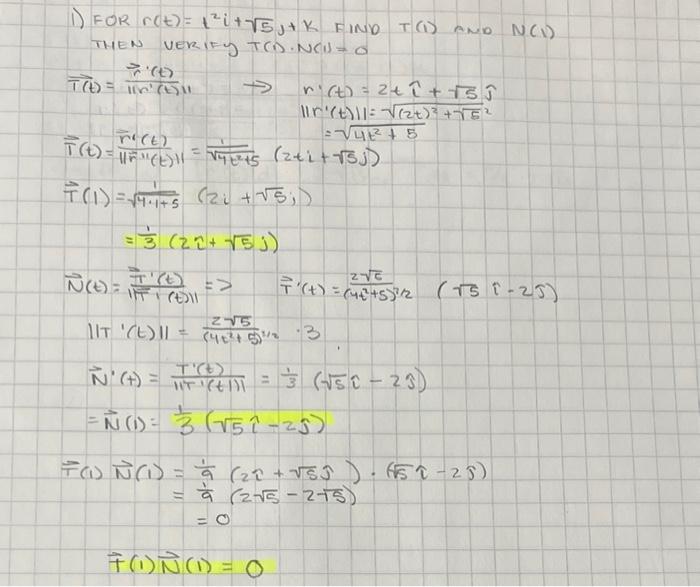 1) FOR r(t) = t²i + √5j + K FIND T(1) AND N(1)
THEN VERIFY T(1)·N(1) = 0
T⃗(t) = r⃗'(t) / ||r'(t)|| → r'(t) = 2t î + √5 ĵ
||r'(t)|| = √(2t)² + √5²
= √4t² + 5
T⃗(t) = r⃗'(t) / ||r⃗'(t)|| = 1/√4t²+5 (2ti + √5j)
T⃗(1) = 1/√4·1+5 (2i + √5j)
= 1/3 (2î + √5 j)
N⃗(t) = T⃗'(t) / ||T'(t)|| => T⃗'(t) = 2√5/(4t²+5)^3/2 (√5 î - 2ĵ)
||T'(t)|| = 2√5/(4t²+5)^3/2 · 3
N⃗'(t) = T'(t) / ||T'(t)|| = 1/3 (√5î - 2ĵ)
= N⃗(1) = 1/3 (√5î - 2ĵ)
T⃗(1) N⃗(1) = 1/9 (2î + √5ĵ) · (√5 î - 2ĵ)
= 1/9 (2√5 - 2√5)
= 0
T⃗(1) N⃗(1) = 0